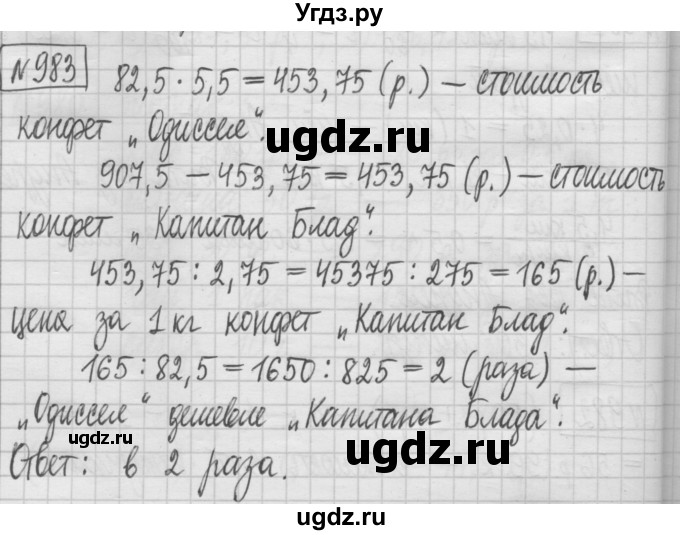 Угдз.ру
№983 82,5 · 5,5 = 453,75 (р.) – стоимость
конфет „Одиссея".
ugdz.ru
907,5 – 453,75 = 453,75 (р.) – стоимость
конфет „Капитан Блад".
453,75 : 2,75 = 45375 : 275 = 165 (р.) –
цена за 1 кг конфет „Капитан Блад".
165 : 82,5 = 1650 : 825 = 2 (раза) –
„Одиссея" дешевле „Капитана Блада".
ugdz.ru
ugdz.ru
Ответ: в 2 раза.
ugdz.ru